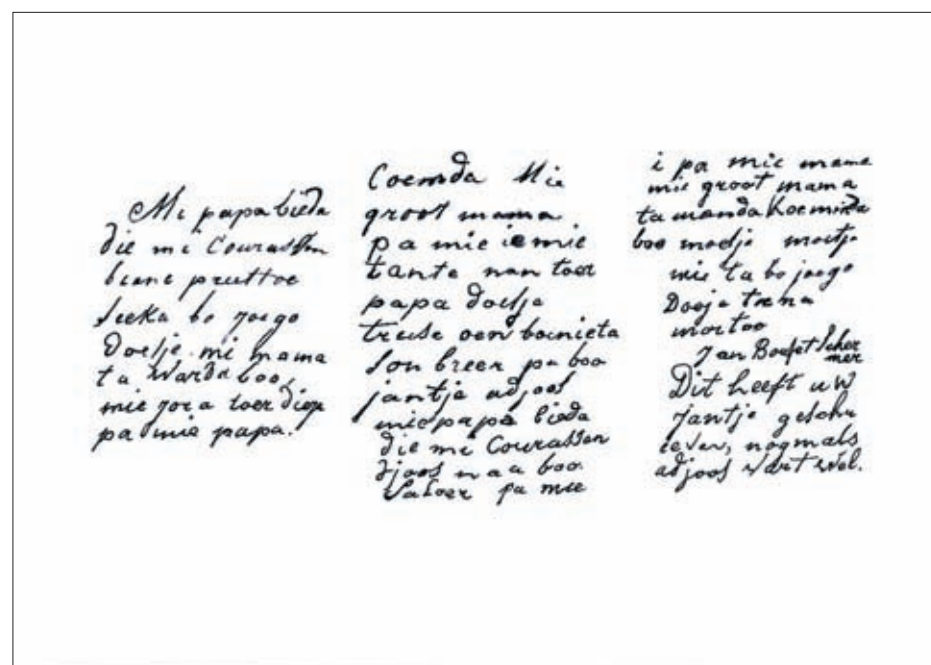 Mi papa bieda
die mi Courasson
biene pruttoe
seeka bo joego
doesje mi mama
ta warda boo,
mie jora toer dieja
pa mie papa.
Coemda Mie
groot mama
pa mie i e mie
tante nan toer
papa doesje
treuse oen bounieta
sonbreer pa boo
jantje adjoos
mie papa bieda
die mi Courasson
djoos naa boo
Saloer pa mie
i pa mie mama
mie groot mama
ta manda Koeminda
boo modje
mie ta bo joego
Dooje tena
mortoo
Jan Boefet Scher
mer
Dit heeft uw
jantje geschr
ieven, nogmals
adjoos vart wel.